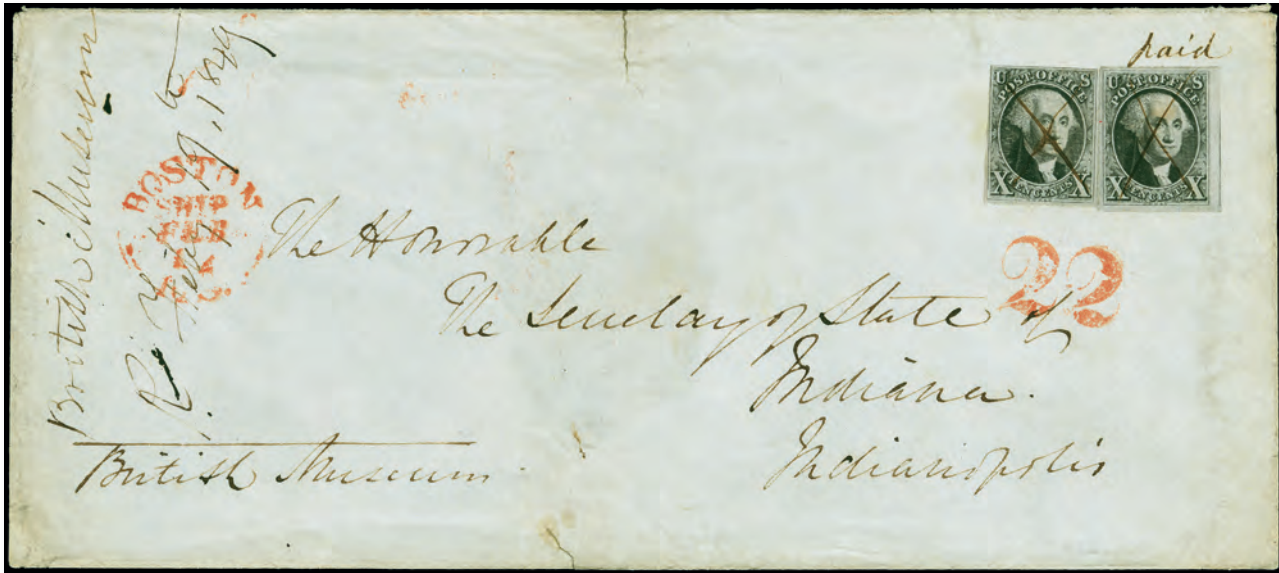 British Museum
Feby 19th, 1849
BOSTON
SHIP
FEB
paid
U S
POST OFFICE
X TEN CENTS X
U S
POST OFFICE
X TEN CENTS X
22
The Honorable
The Secretary of State of
Indiana.
Indianopolis
British Museum.